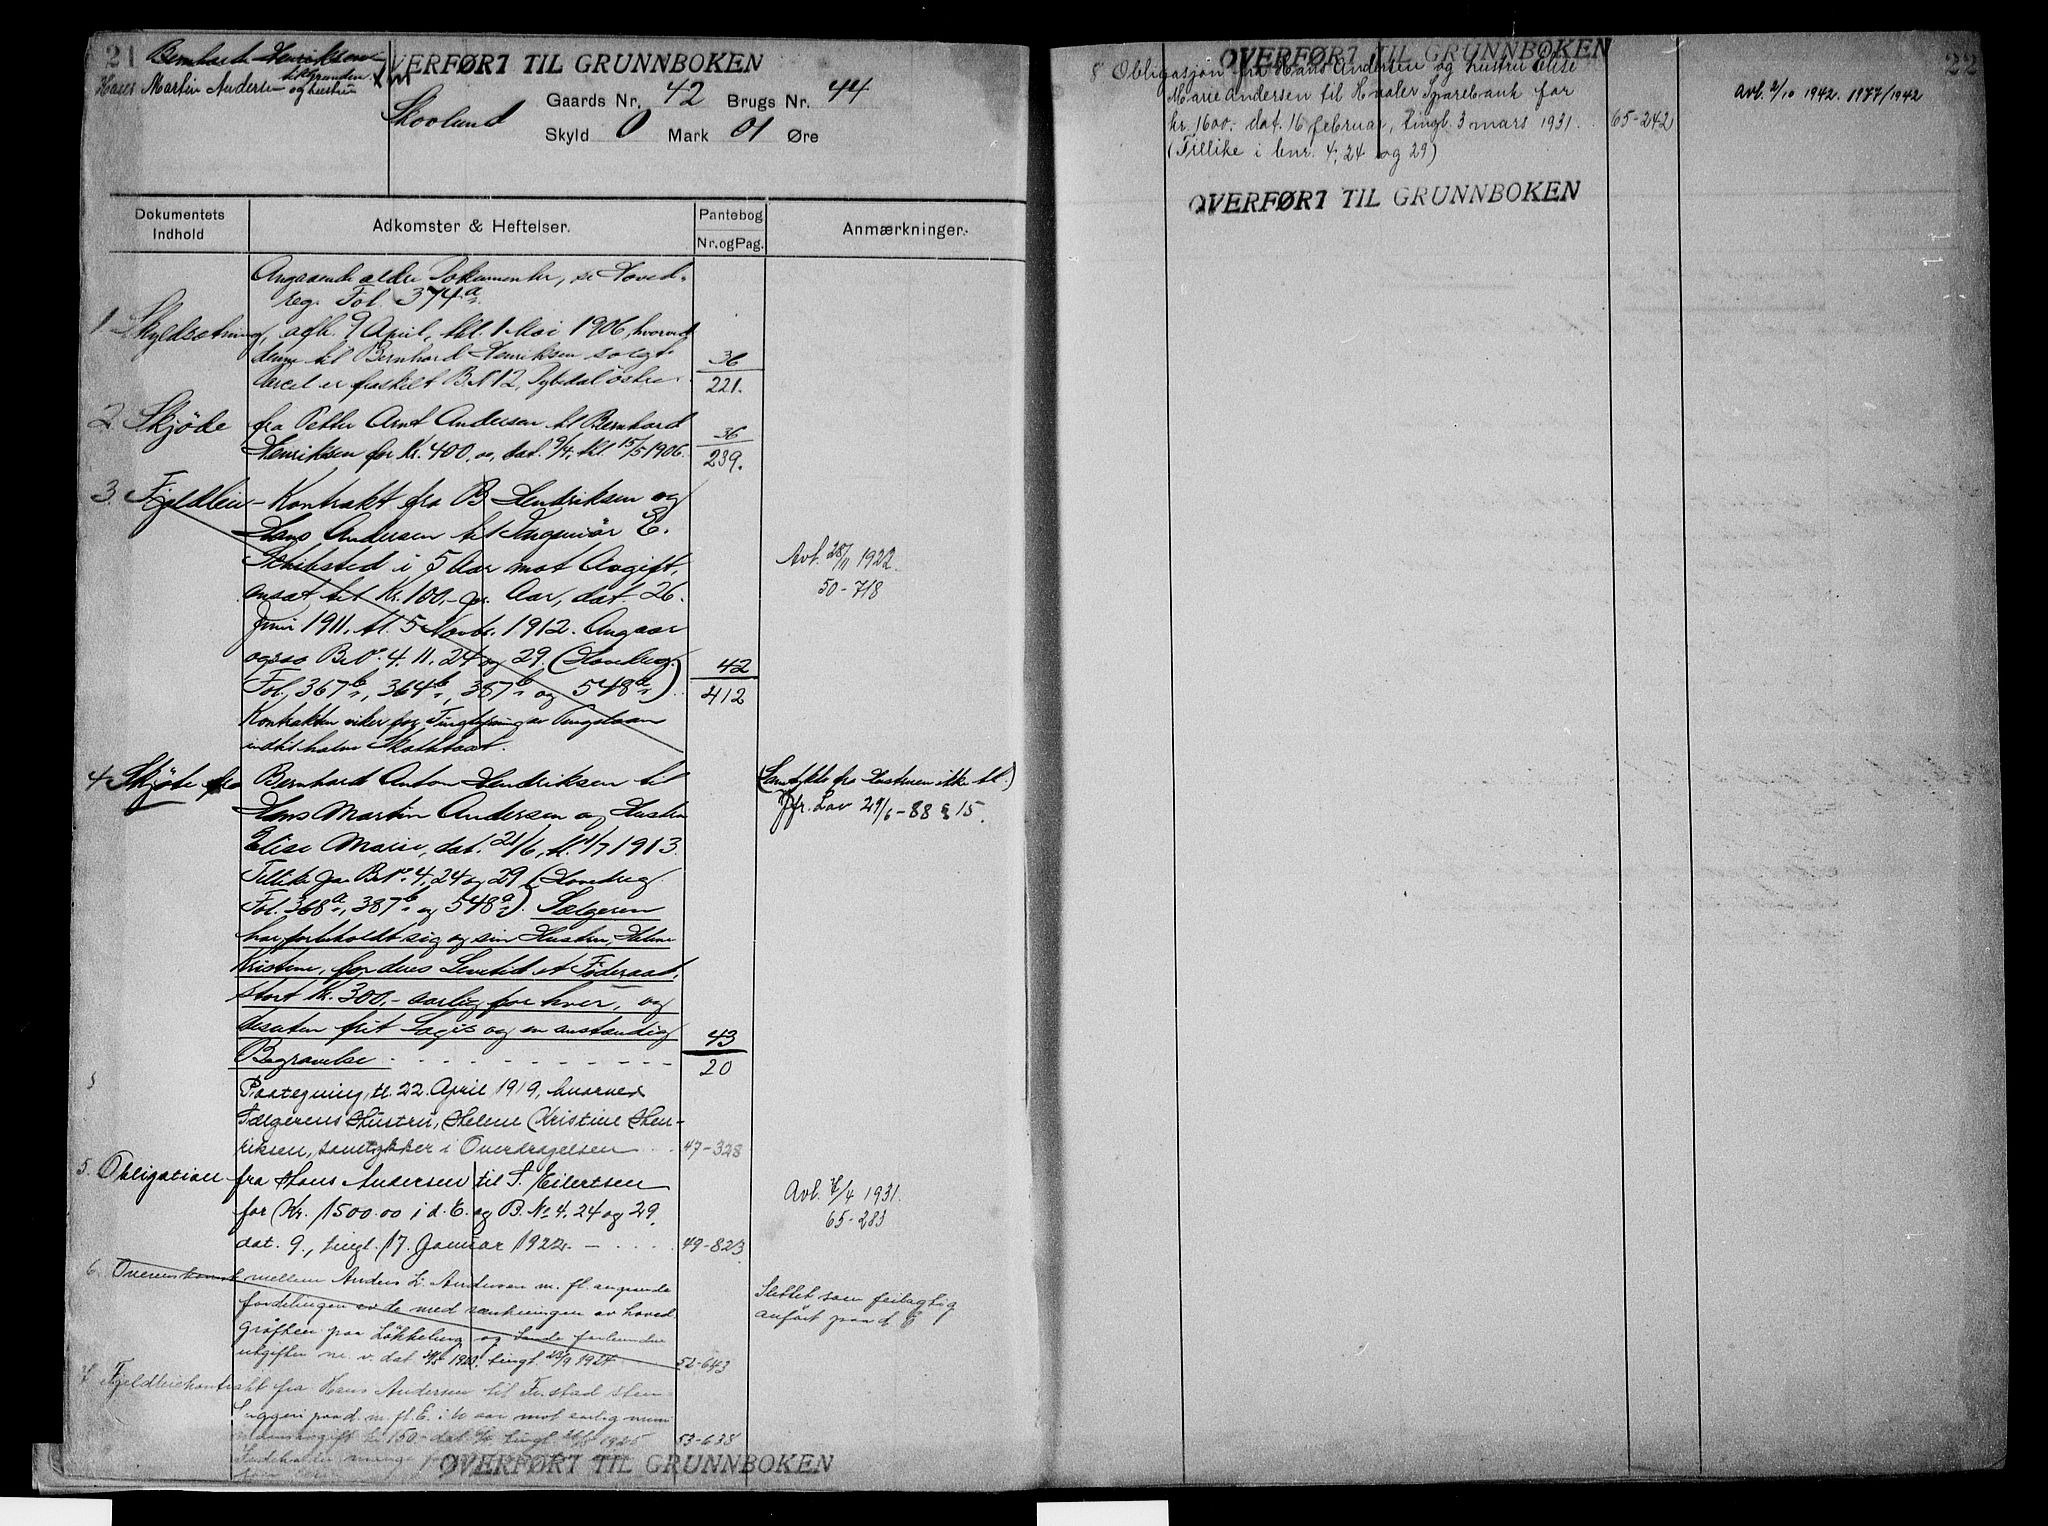 21 Bernhard Henriksen
OVERFØRT TIL GRUNNBOKEN
Hans Martin Andersen og hustru
Gaards Nr. 42 Brugs Nr. 44
Skovlund
Skyld 0 Mark 01 Øre
Dokumentets Indhold
Adkomster & Heftelser.
Pantebog
Nr. og Pag.
Anmærkninger.
Angaaende ældre Dokumenter, se Hoved-
reg. Fol. 374 a.
1. Skyldsætning, afh. 9 April, thl. 1 Mai 1906, hvorved
denne til Bernhard Henriksen solgte
Parcel er fraskilt B N 12, østre
36
221.
2. Skjøde fra Petter Arnt Andersen til Bernhard
Henriksen for Kr. 400,00, dat. 9/4, thl. 15/5 1906.
36
239.
3. Fjeldleie-Kontrakt fra B Hendriksen og
Hans Andersen til Ingeniør E.
Schibsted i 5 Aar mot Avgift,
ansat til Kr. 100,- pr. Aar, dat. 26.
Juni 1911, tl. 5 Novbr. 1912. Angaar
ogsaa B.No. 4. 11. 24 og 29. (Hovedreg.
Fol. 367 b, 364 b, 387 b og 548 a)
42
412
Kontrakten viker for Tinglysning av Pengelaan
indtil halve Skattetaxt.
Avl. 28/11 1922
50-718
4. Skjøte fra Bernhard Anton Hendriksen til
Hans Martin Andersen og Hustru
Elise Marie, dat. 21/6, tl. 1/7 1913.
Tillike paa B.No. 4, 24 og 29 (Hovedreg.
Fol. 368 a, 387 b og 548 a). Sælgeren
har forbeholdt sig og sin Hustru, Helene
Kristine, for deres Levetid et Føderaad,
stort Kr. 300,- aarlig for hver, og
desuten frit Logis og en anstændig
Begravelse
43
20
(Samtykke fra Hustruen ikke tl.)
Jfr. Lov 29/6-88 § 15.
Paategning, tl. 22. April 1919, hvorved
Sælgerens Hustru, Helene Kristine Hen-
riksen, samtykker i Overdragelsen 47-328
5. Obligation fra Hans Andersen til S. Eilertsen
for Kr. 1500.00 i d. E. og B. No 4, 24 og 29,
dat. 9., tingl. 17. Januar 1922. 49-823
Avl. 7/4 1931.
65-283
6. Overenskomst mellem Anders L. Andersen m. fl. angaaende
fordelingen av de med sænkningen av hoved
grøften paa Løkkeberg og Sande forbundne
utgifter m. v. dat 1923, tingl 23/9 1924 52-643
Slettet som feilagtig
anført paa d. E
7. Fjeldleiekontrakt fra Hans Andersen til Fr.stad Sten-
huggeri paa d. m. fl. E. i 10 aar mot aarlig mini
mumsavgift kr 150.- dat tingl 1925 53-638
Indeholder mange
OVERFØRT TIL GRUNNBOKEN
OVERFØRT TIL GRUNNBOKEN
22
8 Obligasjon fra Hans Andersen og hustru Elise
Marie Andersen til Hvaler Sparebank for
kr. 1600.- dat. 16 februar, tingl. 3 mars 1931. 65-242
(Tillike i bnr. 4, 24 og 29)
Avl. 2/10 1942. 1977/1942
OVERFØRT TIL GRUNNBOKEN